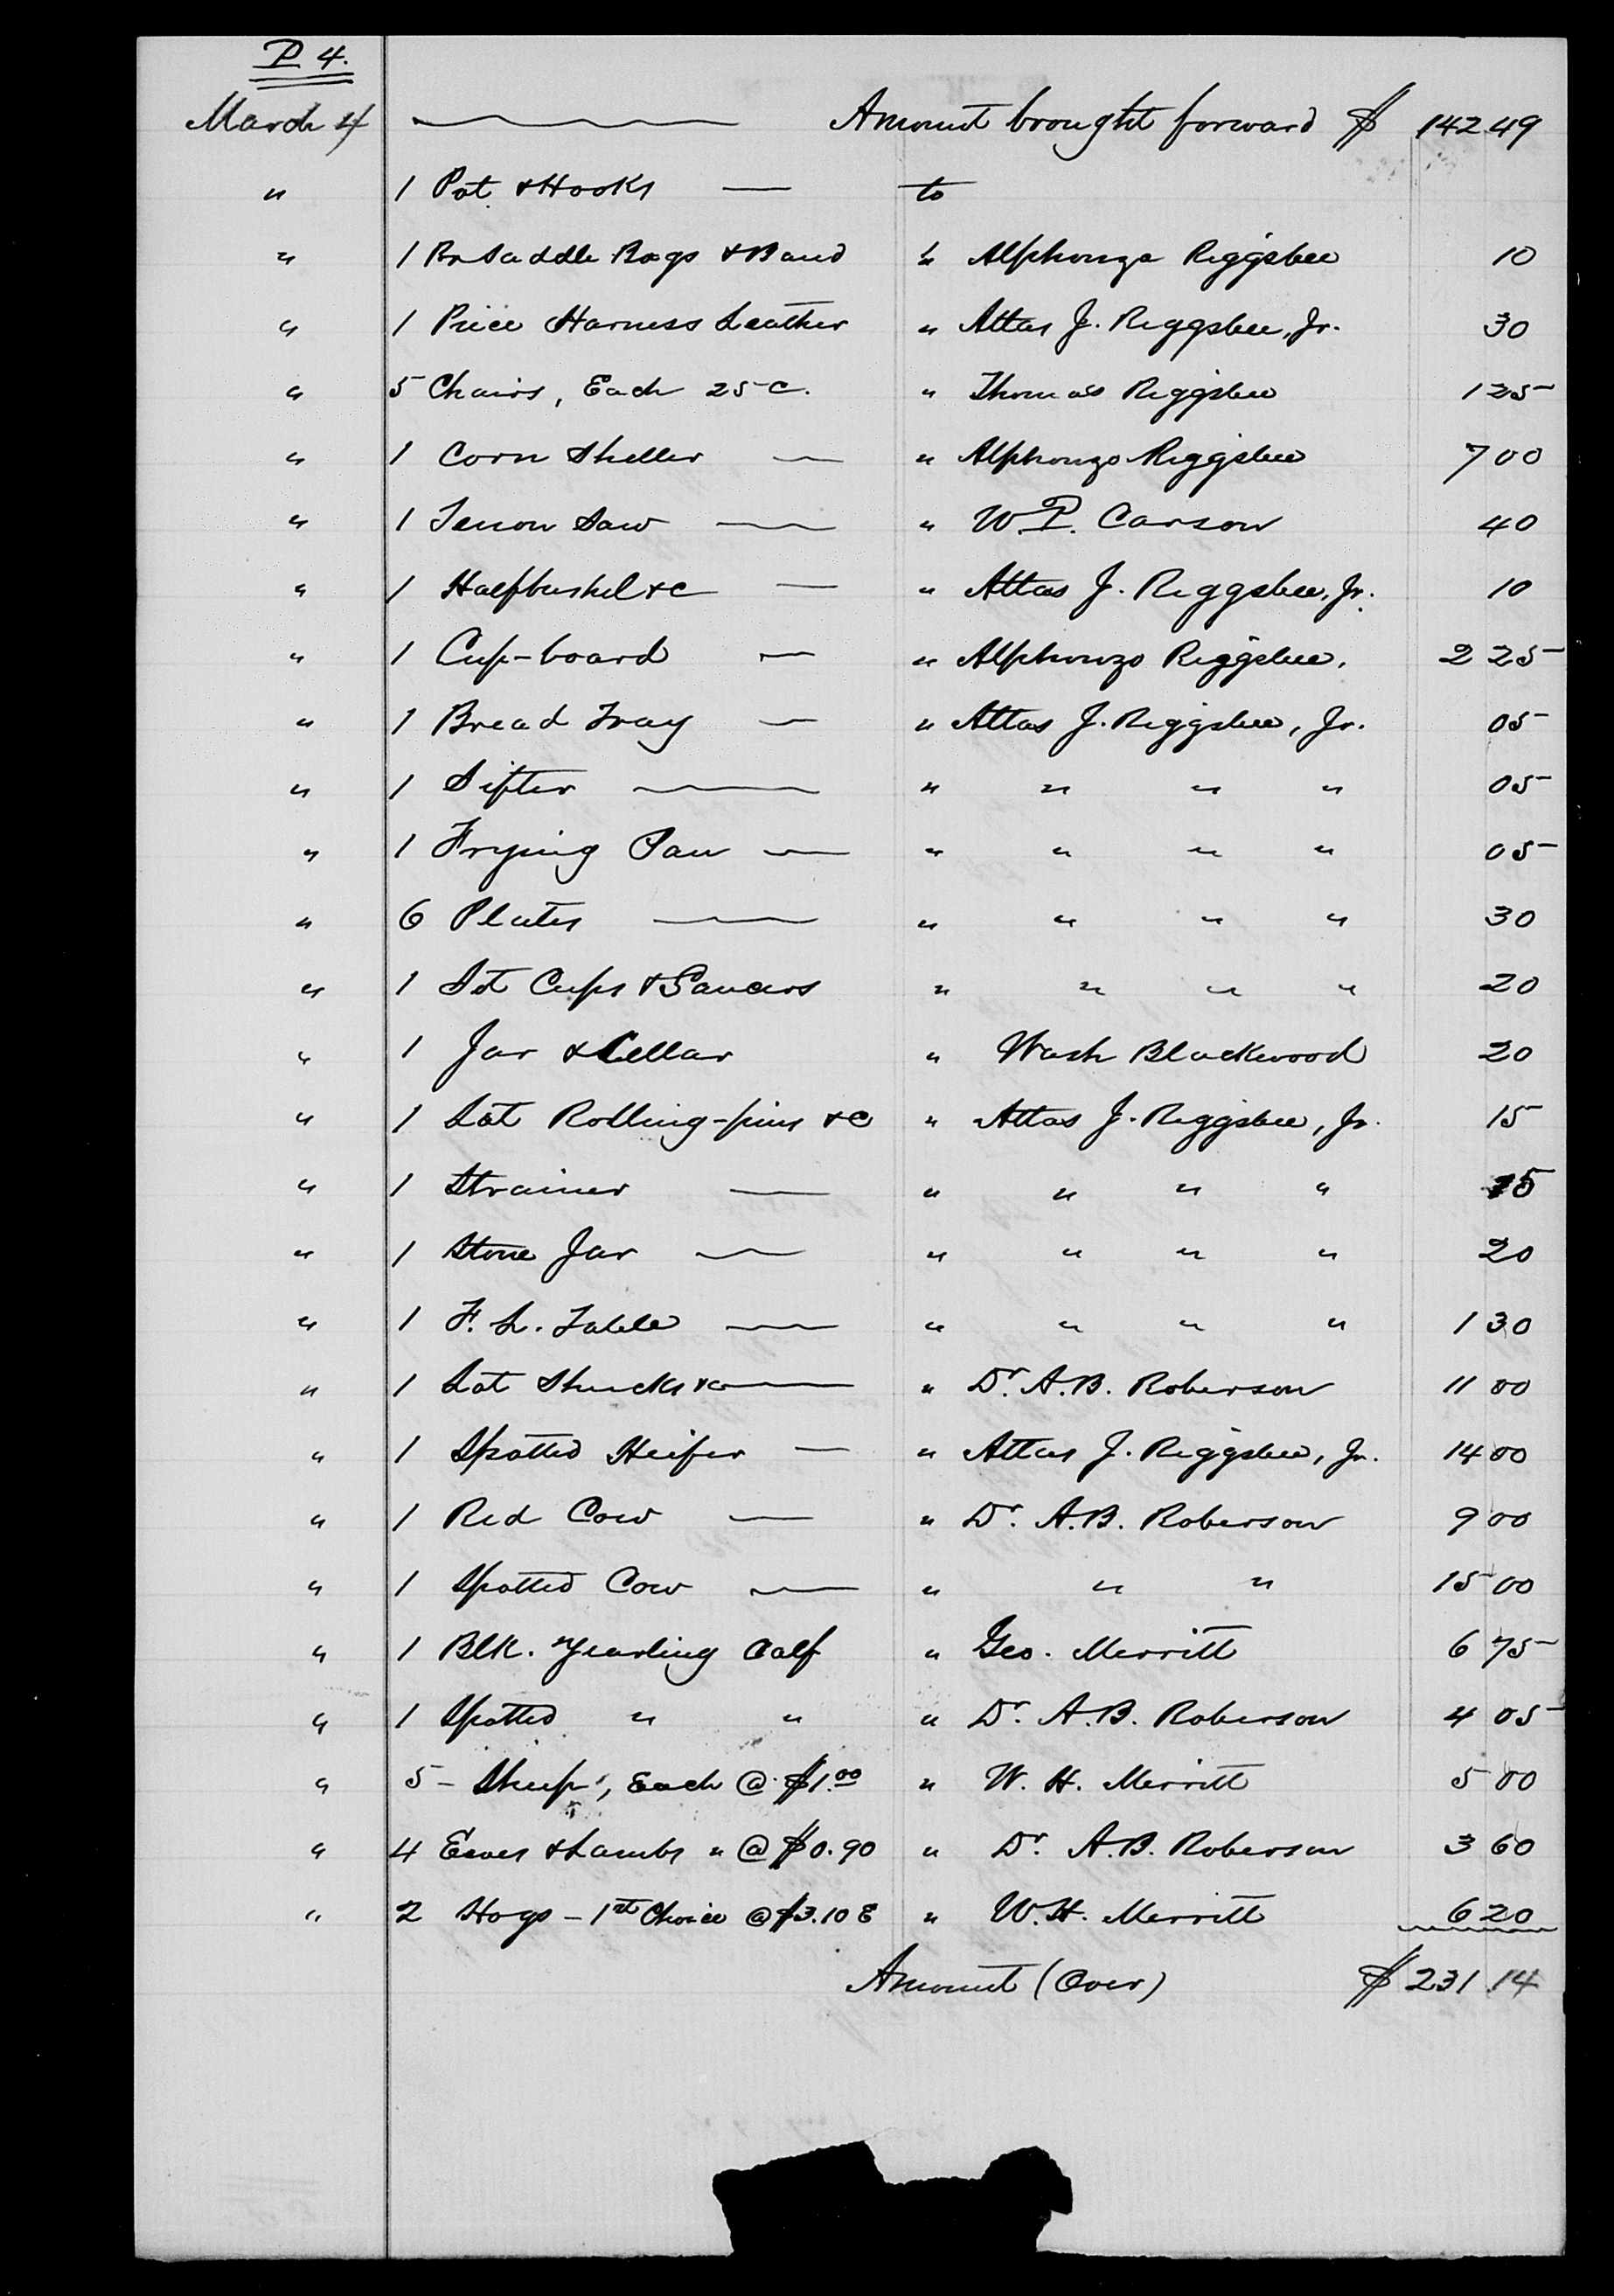 P 4.
March 4 Amount brought forward $ 142 49
" 1 Pot & Hooks — to
" 1 Pr Saddle Bags & Band " Alphonzo Riggsbee 10
" 1 Piece Harness Leather " Attas J. Riggsbee, Jr. 30
" 5 Chairs, Each 25 c. " Thomas Riggsbee 1 25
" 1 Corn Sheller — " Alphonzo Riggsbee 7 00
" 1 Tenon Saw — " W. P. Carson 40
" 1 Halfbushel &c — " Attas J. Riggsbee, Jr. 10
" 1 Cup-board — " Alphonzo Riggsbee. 2 25
" 1 Bread Tray — " Attas J. Riggsbee, Jr. 05
" 1 Sifter — " " " " 05
" 1 Frying Pan — " " " " 05
" 6 Plates — " " " " 30
" 1 Set Cups & Saucers " " " " 20
" 1 Jar & Cellar " Wash Blackwood 20
" 1 Lot Rolling-pins &c " Attas J. Riggsbee, Jr. 15
" 1 Strainer — " " " " 15
" 1 Stone Jar — " " " " 20
" 1 F. L. Table — " " " " 1 30
" 1 Lot Shucks &c — " Dr. A. B. Roberson 11 00
" 1 Spotted Heifer — " Attas J. Riggsbee, Jr. 14 00
" 1 Red Cow — " Dr. A. B. Roberson 9 00
" 1 Spotted Cow — " " " 15 00
" 1 Blk. Yearling Calf " Geo. Merritt 6 75
" 1 Spotted " " " Dr. A. B. Roberson 4 05
" 5 - Sheep, Each @ $1.00 " W. H. Merritt 5 00
" 4 Ewes & Lambs " @ $0.90 " Dr. A. B. Roberson 3 60
" 2 Hogs - 1st Choice @ $3.10 E " W. H. Merritt 6 20
Amount (Over) $ 231 14